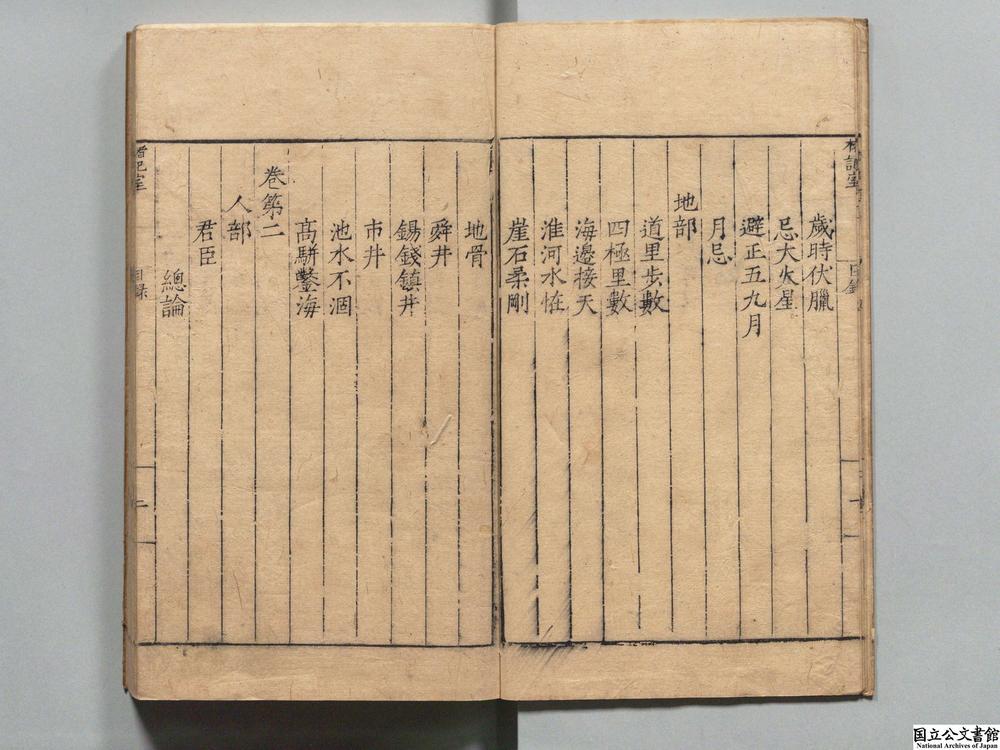 歲時伏臘
忌大火星
避正五九月
月忌
地部
道里步數
四極里數
海邊接天
淮河水怪
崖石柔剛
地骨
舜井
錫錢鎮井
市井
池水不涸
高駢鑿海
卷第二
人部
君臣
總論
目錄
二
国立公文書館
National Archives of Japan